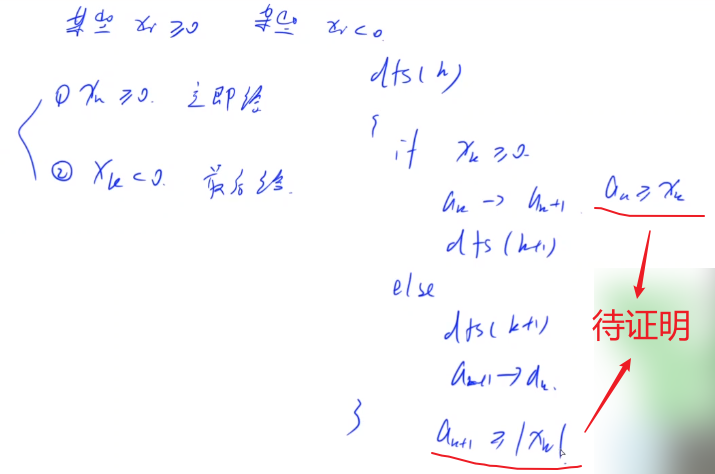 某些 xᵢ ≥ 0 某些 xᵢ < 0
① xₖ ≥ 0. 立即给
② xₖ < 0. 最后给.
dfs(k)
{
if xₖ ≥ 0.
aₖ -> aₖ₊₁ aₖ ≥ xₖ
dfs(k+1)
else
dfs(k+1)
aₖ₊₁ -> aₖ.
}
aₖ₊₁ ≥ |xₖ|
待证明